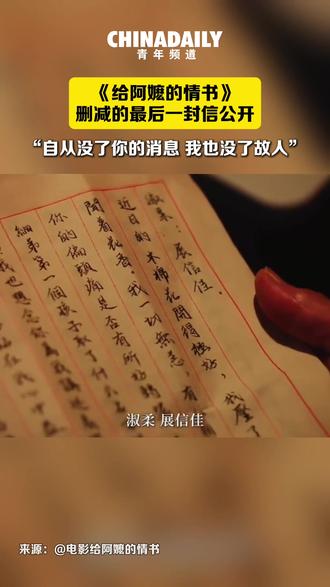 CHINADAILY
青年频道
《给阿嬷的情书》
删减的最后一封信公开
“自从没了你的消息 我也没了故人”
淑柔：展信佳。
近日的木棉花開得極好，我壓了
聞着花香，我一切無恙，
你的偏頭痛是否有所好轉
細弟第一個孩子取了什
我也想念你
淑柔 展信佳
来源：@电影给阿嬷的情书